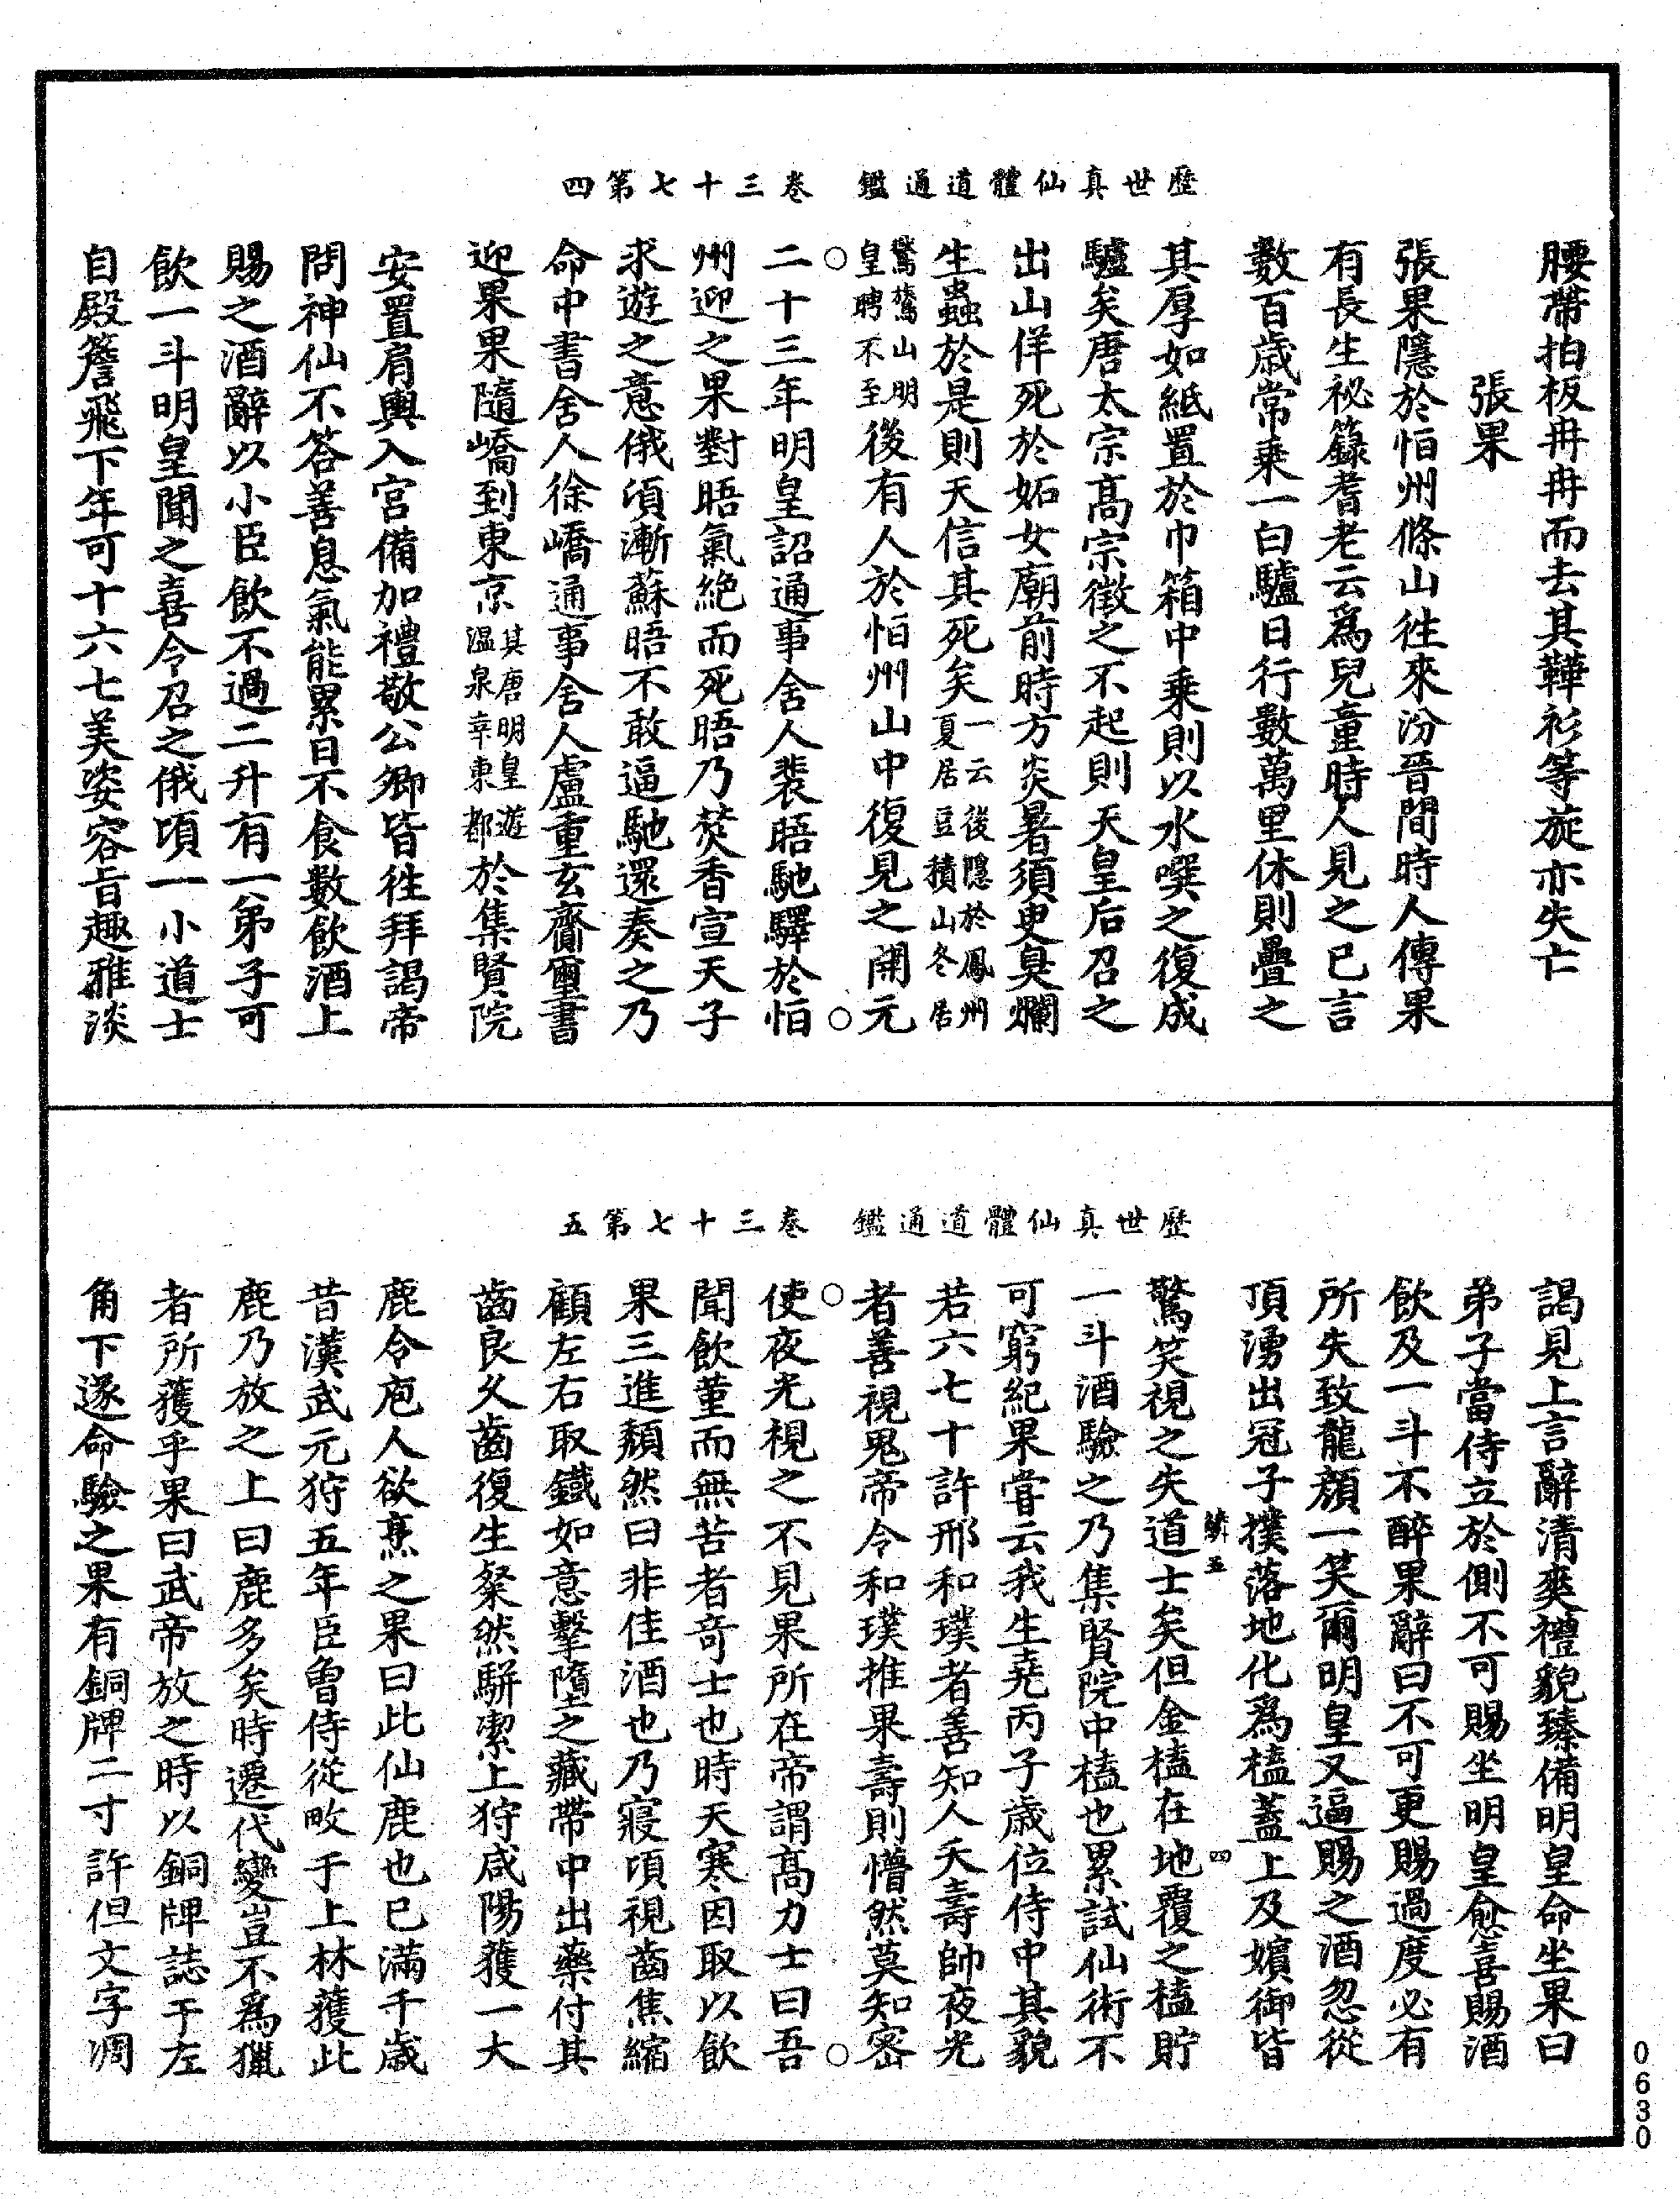 歷世真仙體道通鑑　卷三十七第四
腰帶拍板冉冉而去其鞾衫等旋亦失亡
張果
張果隱於怕州條山往來汾晉間時人傳果
有長生祕籙耆老云爲兒童時人見之已言
數百歲常乗一白驢日行數萬里休則疊之
其厚如紙置於巾箱中乗則以水噀之復成
驢矣唐太宗髙宗徵之不起則天皇后召之
出山佯死於妬女廟前時方炎暑須臾臭爛
生蟲於是則天信其死矣一云後隱於鳳州夏居豆積山冬居
鷲鷲山明皇聘不至後有人於怕州山中復見之開元
二十三年明皇詔通事舍人裴晤馳驛於怕
州迎之果對晤氣絶而死晤乃焚香宣天子
求遊之意俄頃漸蘇晤不敢逼馳還奏之乃
命中書舍人徐嶠通事舍人盧重玄齎璽書
迎果果隨嶠到東京其唐明皇遊温泉幸東都於集賢院
安置肩輿入宮備加禮敬公卿皆往拜謁帝
問神仙不答善息氣能累日不食數飲酒上
賜之酒辭以小臣飲不過二升有一弟子可
飲一斗明皇聞之喜令召之俄頃一小道士
自殿簷飛下年可十六七美姿容旨趣雅淡
歷世真仙體道通鑑　卷三十七第五
謁見上言辭清爽禮貌臻備明皇命坐果曰
弟子當侍立於側不可賜坐明皇愈喜賜酒
飲及一斗不醉果辭曰不可更賜過度必有
所失致龍顔一笑爾明皇又逼賜之酒忽從
頂湧出冠子撲落地化爲榼蓋上及嬪御皆
驚笑視之失道士矣但金榼在地覆之榼貯
一斗酒驗之乃集賢院中榼也累試仙術不
可窮紀果嘗云我生堯丙子歲位侍中其貌
若六七十許邢和璞者善知人夭壽師夜光
者善視鬼帝令和璞推果壽則懵然莫知密
使夜光視之不見果所在帝謂髙力士曰吾
聞飲菫而無苦者奇士也時天寒因取以飲
果三進頹然曰非佳酒也乃寢頃視齒焦縮
顧左右取鐵如意擊墮之藏帶中出藥付其
齒良久齒復生粲然駢潔上狩咸陽獲一大
鹿令庖人欲烹之果曰此仙鹿也已滿千歲
昔漢武元狩五年臣曾侍從畋于上林獲此
鹿乃放之上曰鹿多矣時遷代變豈不爲獵
者所獲乎果曰武帝放之時以銅牌誌于左
角下遂命驗之果有銅牌二寸許但文字凋
四
0630